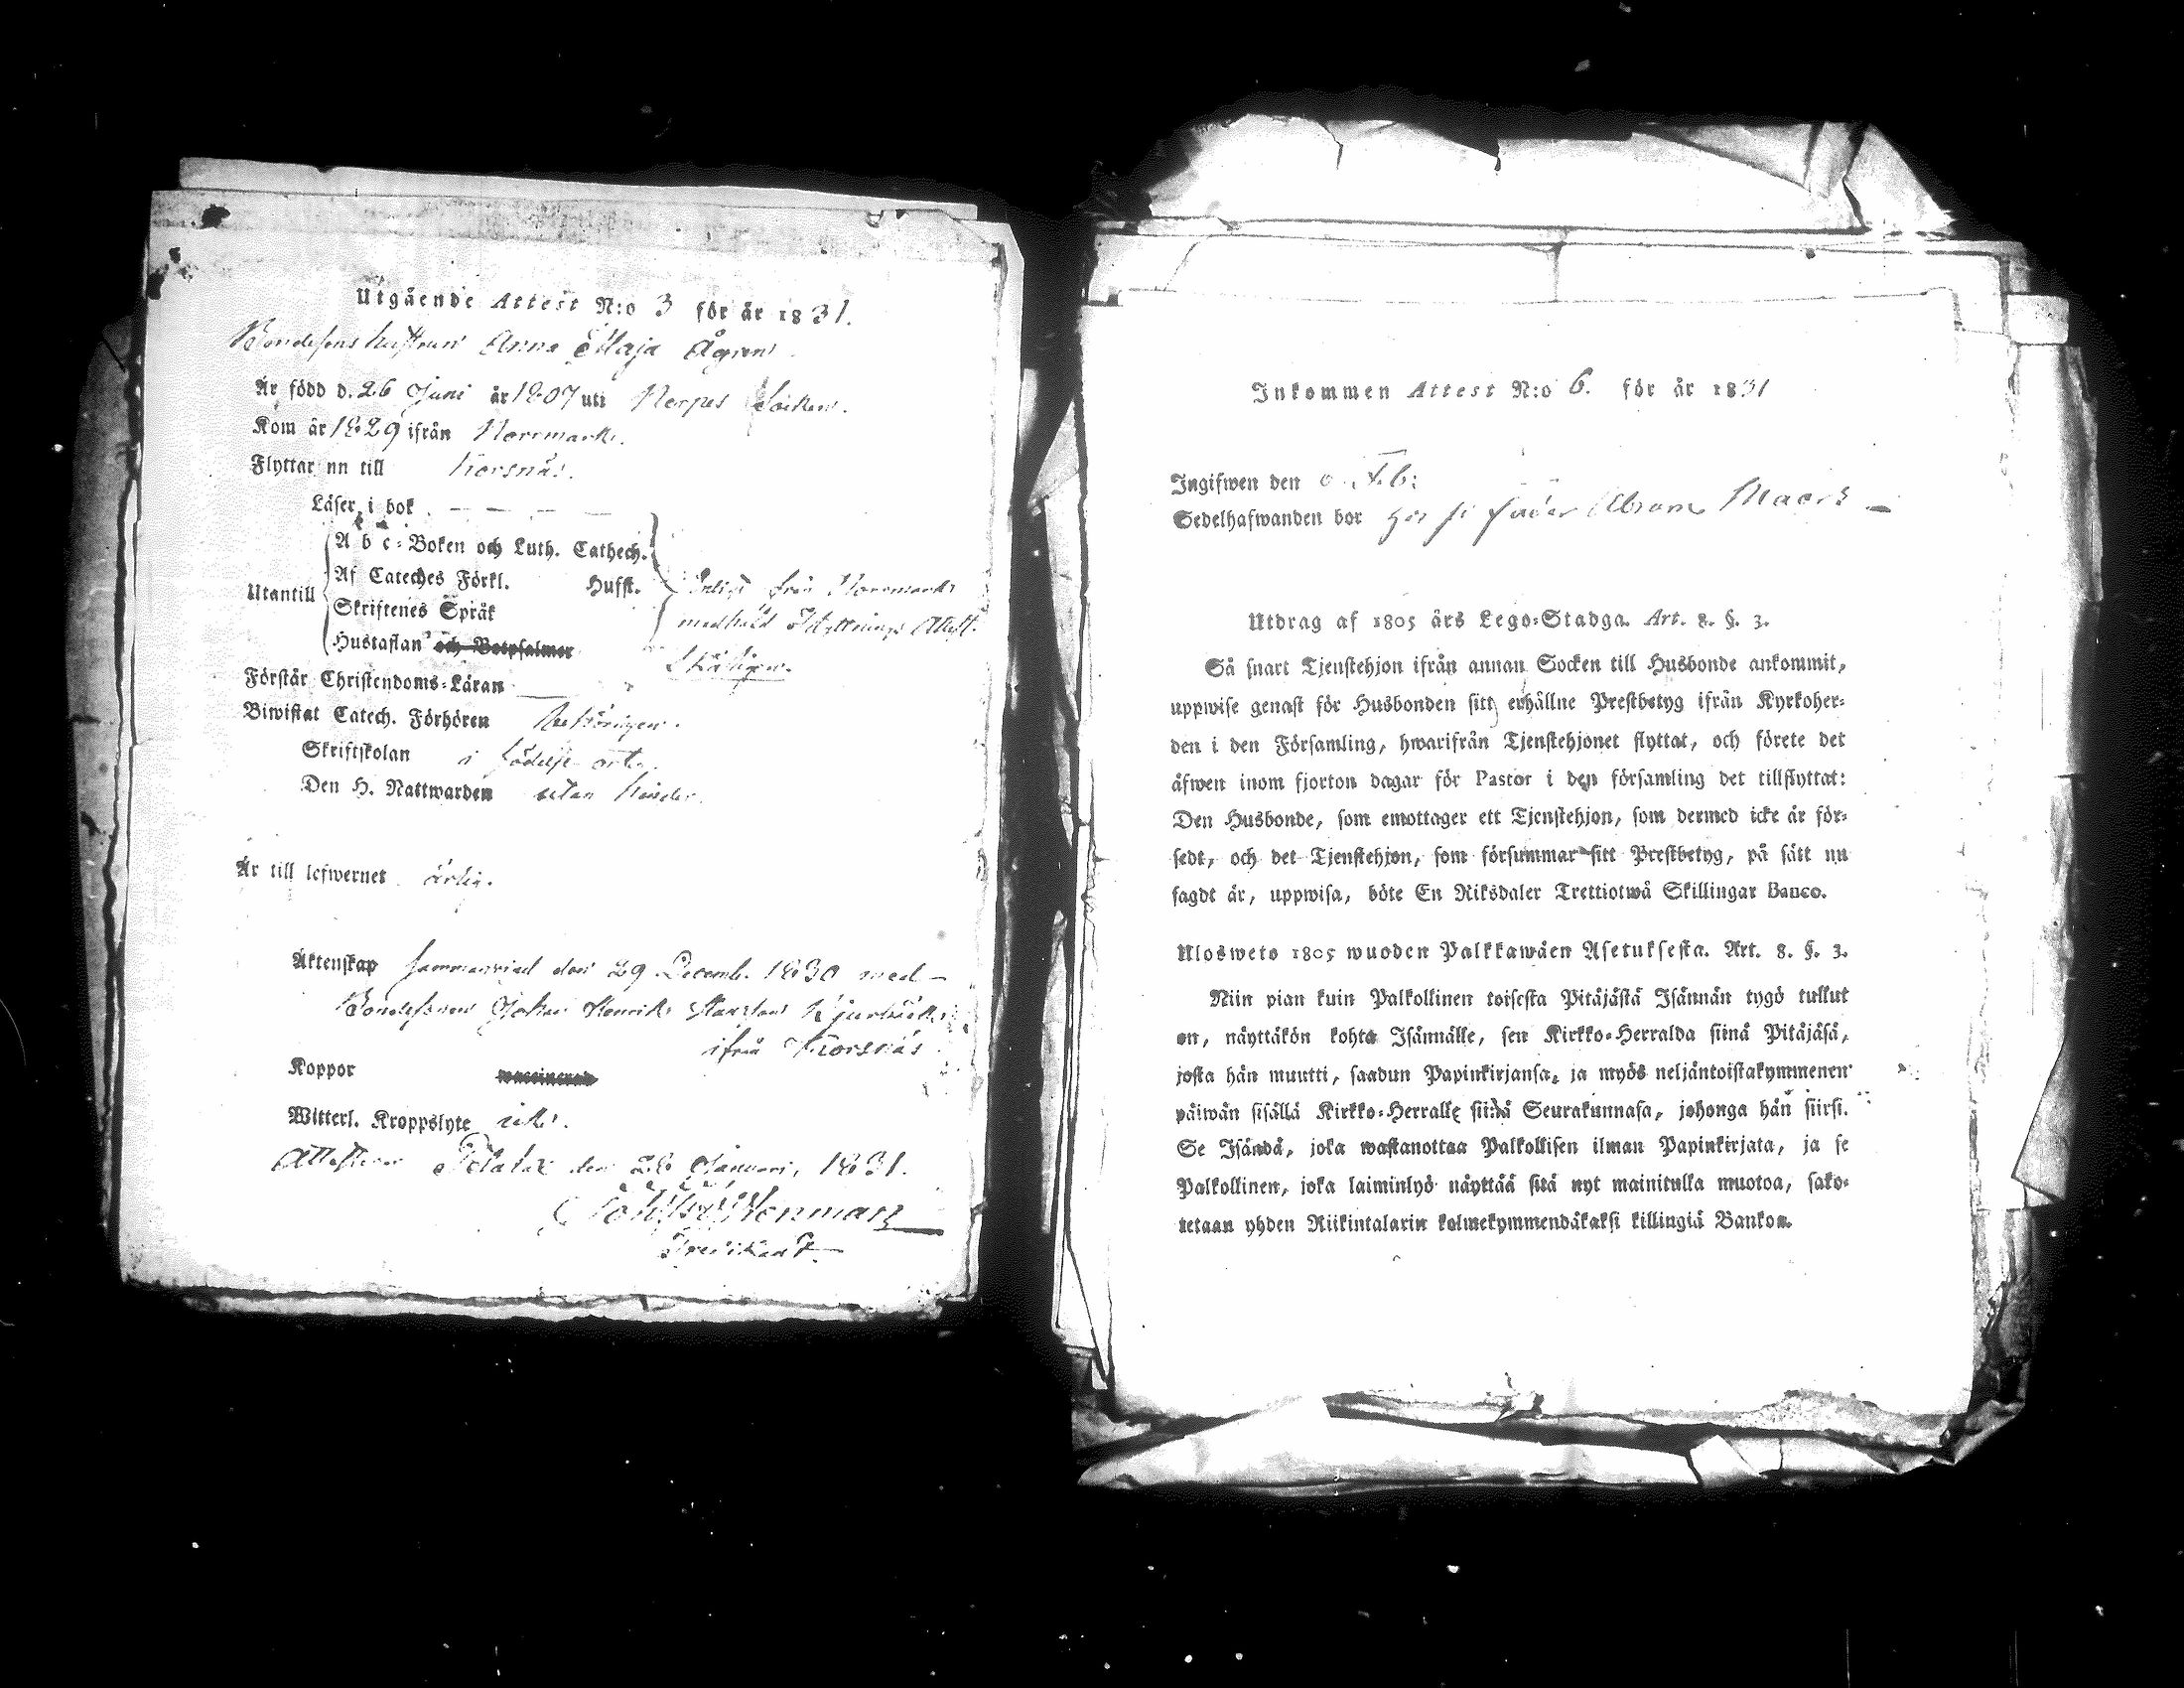 Utgående Attest N:o 3 för år 1831.
Bondesons hustrun Anna Maja Ågren.
Är född d. 26 Juni år 1807 uti Nerpes Socken.
Kom år 1829 ifrån Norrmark.
Flyttar nu till Korsnäs.
Läser i bok
A b c-Boken och Luth. Cathech.
Af Cateches Förkl. Hufst.
Utantill
Skriftenes Språk
Hustaflan och Botpsalmer
Enligt från Norrmark
medhåld flyttnings Attest.
Förstår Christendoms-Läran
Biwistat Catech. Förhören behörigen.
Skriftskolan i födelse orten.
Den H. Nattwarden utan hinder.
Är till lefwernet ärlig.
Äktenskap sammanvigd den 29 Decemb. 1830 med
Bondesonen Johan Henrik
ifrån Korsnäs
Koppor vaccinerad
Witterl. Kroppslyte
Attesterar Petalax den 28 Januari, 1831.
Predikant
Inkommen Attest N:o 6. för år 1831
Ingifwen den Feb:
Sedelhafwanden bor Abram
Utdrag af 1805 års Lego-Stadga. Art. 8. §. 3.
Så snart Tjenstehjon ifrån annan Socken till Husbonde ankommit,
uppwise genast för Husbonden sitt erhållne Prestbetyg ifrån Kyrkoher-
den i den Församling, hwarifrån Tjenstehjonet flyttat, och förete det
äfwen inom fjorton dagar för Pastor i den församling det tillflyttat:
Den Husbonde, som emottager ett Tjenstehjon, som dermed icke är för-
sedt, och det Tjenstehjon, som försummar sitt Prestbetyg, på sätt nu
sagdt är, uppwisa, böte En Riksdaler Trettiotwå Skillingar Banco.
Ulosweto 1805 wuoden Palkkawäen Asetuksesta. Art. 8. §. 3.
Niin pian kuin Palkollinen toisesta Pitäjästä Isännän tygö tullut
on, näyttäkön kohta Isännälle, sen Kirkko-Herralda siinä Pitäjäsä,
josta hän muutti, saadun Papinkirjansa, ja myös neljäntoistakymmenen
päiwän sisällä Kirkko-Herralle siinä Seurakunnasa, johonga hän siirsi.
Se Isändä, joka wastanottaa Palkollisen ilman Papinkirjata, ja se
Palkollinen, joka laiminlyö näyttää sitä nyt mainitulla muotoa, sako-
tetaan yhden Riikintalarin kolmekymmendäkaksi killingiä Bankoa.